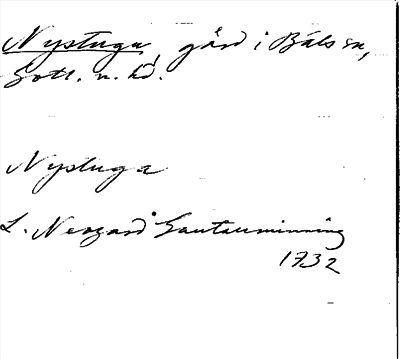 Nystuga, gård i Bäls sn,
Gotl. n. hd.
Nystuga
L. Nergård Gautauminning
1732